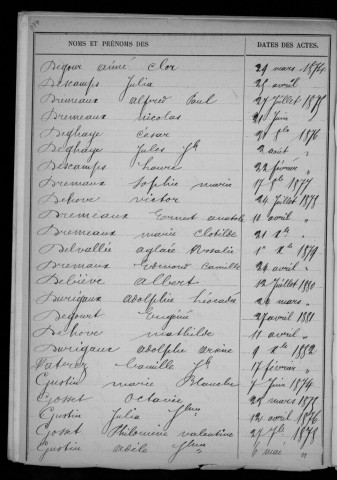 NOMS ET PRÉNOMS DES DATES DES ACTES.
Degour Aimé Clor 29 mars 1874
Descamps Julia 25 avril
Dremaux Alfred Paul 27 Juillet 1875
Dremeaux Nicolas 21 Juin
Deghaye César 28 1876
Deghaye Jules Jh 2 août "
Descamps Laure 22 février "
Dremaux Sophie Marie 17 1877
Dehove Victor 24 Juillet 1878
Dremeaux Ernest Anatole 11 avril "
Dremeaux Marie Clotilde 21 "
Delvallée Aglaée Rosalie 1879
Dremaux Edmond Camille 24 avril "
Delière Albert 12 Juillet 1880
Durigaux Adolphe 26 mars "
Degourt Eugénie 27 avril 1881
Dehove Mathilde 11 avril "
Durigaux Adolphe Arsène 9 1882
Camille Jh 17 février "
Gustin Marie Blanche 7 Juin 1874
Gosset Octavie 25 mars 1875
Gustin Julia 12 avril 1876
Gosset Philomène Valentine 27 1878
Gustin Adèle 6 mai "